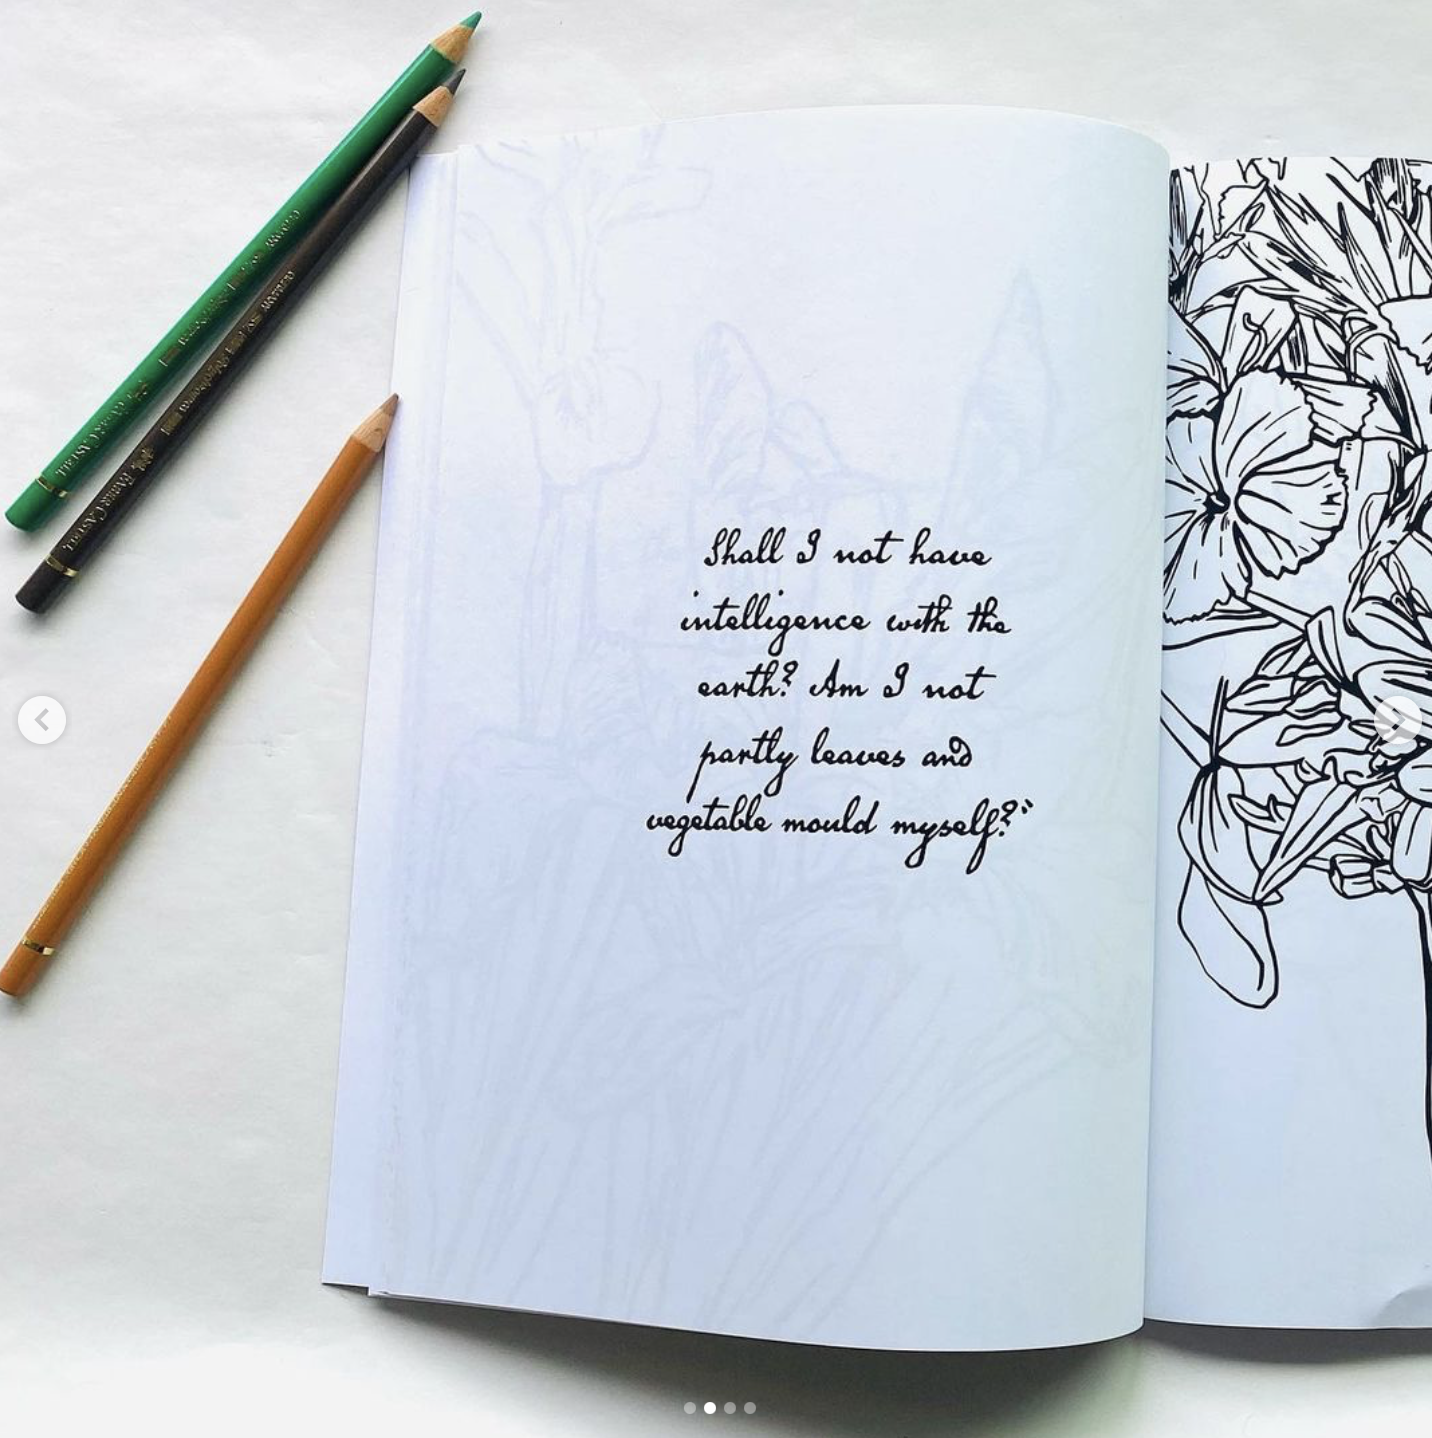 Shall I not have
intelligence with the
earth? Am I not
partly leaves and
vegetable mould myself?"
FABER-CASTELL
FABER-CASTELL